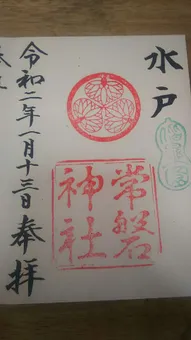 水戸
常磐
神社
令和二年一月十三日奉拝